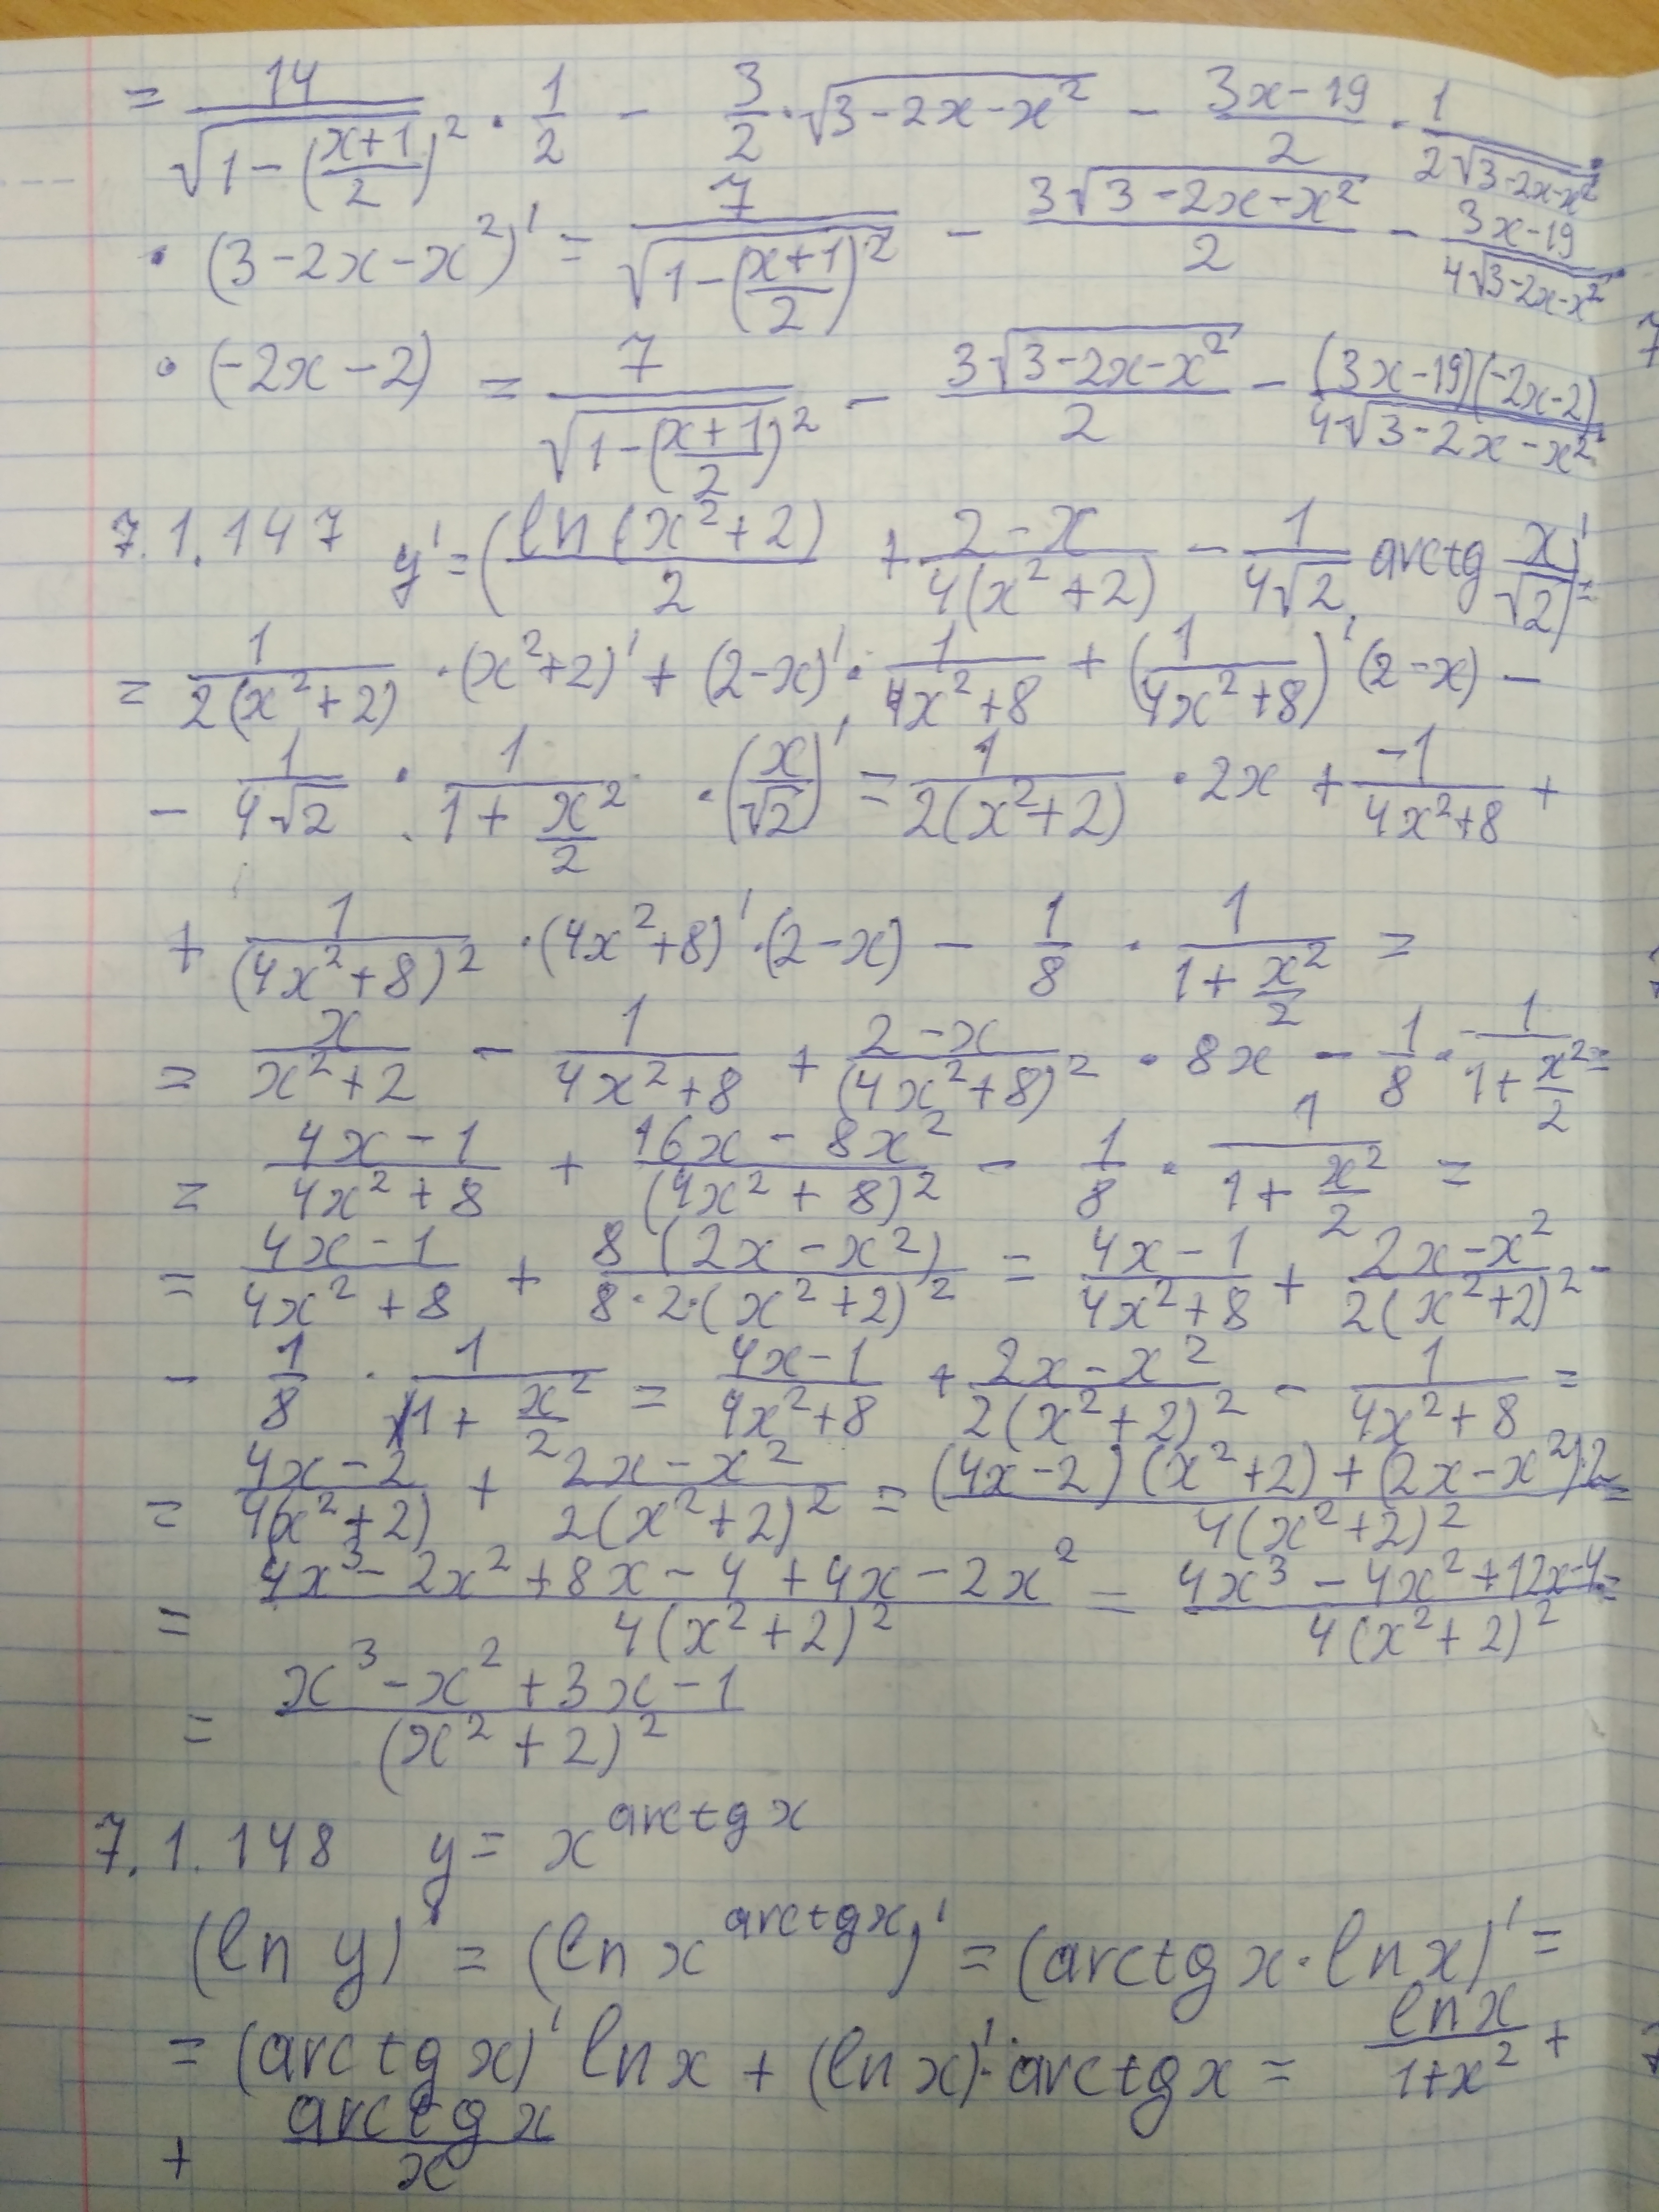 = 14/√(1-((x+1)/2)²) · 1/2 - 3/2 · √(3-2x-x²) - (3x-19)/2 · 1/(2√(3-2x-x²)) ·
· (3-2x-x²)' = 7/√(1-((x+1)/2)²) - 3√(3-2x-x²)/2 - (3x-19)/(4√(3-2x-x²)) ·
· (-2x-2) = 7/√(1-((x+1)/2)²) - 3√(3-2x-x²)/2 - (3x-19)(-2x-2)/(4√(3-2x-x²))
7.1.147 y' = (ln(x²+2)/2 + (2-x)/(4(x²+2)) - 1/(4√2) arctg x/√2)' =
= 1/(2(x²+2)) · (x²+2)' + (2-x)' · 1/(4x²+8) + (1/(4x²+8))' (2-x) -
- 1/(4√2) · 1/(1+x²/2) · (x/√2)' = 1/(2(x²+2)) · 2x + -1/(4x²+8) +
+ 1/(4x²+8)² · (4x²+8)' · (2-x) - 1/8 · 1/(1+x²/2) =
= x/(x²+2) - 1/(4x²+8) + (2-x)/(4x²+8)² · 8x - 1/8 · 1/(1+x²/2) =
= (4x-1)/(4x²+8) + (16x-8x²)/(4x²+8)² - 1/8 · 1/(1+x²/2) =
= (4x-1)/(4x²+8) + 8(2x-x²)/(8·2·(x²+2)²) = (4x-1)/(4x²+8) + (2x-x²)/(2(x²+2)²) -
- 1/8 · 1/(1+x²/2) = (4x-1)/(4x²+8) + (2x-x²)/(2(x²+2)²) - 1/(4x²+8) =
= (4x-2)/(4(x²+2)) + (2x-x²)/(2(x²+2)²) = ((4x-2)(x²+2)+(2x-x²)·2)/(4(x²+2)²) =
= (4x³-2x²+8x-4+4x-2x²)/(4(x²+2)²) = (4x³-4x²+12x-4)/(4(x²+2)²) =
= (x³-x²+3x-1)/(x²+2)²
7.1.148 y = x^(arctg x)
(ln y)' = (ln x^(arctg x))' = (arctg x · ln x)' =
= (arctg x)' ln x + (ln x)' · arctg x = ln x/(1+x²) +
+ arctg x/x